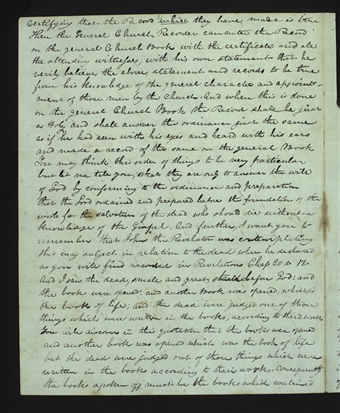 certifying that the Record which they have made is true
Then the General Church Recorder can enter the Record
on the general Church Book with the certificate and all
the attending witnesses, with his own statement that he
verily believes the above statement and records to be true
from his knowledge of the general character and appoint-
ment of those men by the Church. And when this is done
on the general Church Book the Record shall be just
as Holy and shall answer the ordinance just the same
as if he had seen with his eyes and heard with his ears
and made a record of the same on the general Book
You may think this order of things to be very particular
but let me tell you, that they are only to answer the will
of God by conforming to the ordinance and preparation
that the Lord ordained and prepared before the foundation of the
world for the salvation of the dead who should die without a
knowledge of the Gospel. And further, I want you to
remember that John the Revelator was contemplating
this very subject in relation to the dead when he declared
as you will find recorded in Revelations Chap 20 v 12
And I saw the dead, small and great, stand before God; and
the books were opened; and another book was opened, which is
the book of life; and the dead were judged out of those
things which were written in the books, according to their works
You will discover in this quotation that the books were opened
and another book was opened which was the book of life
but the dead were judged out of those things which were
written in the books according to their works: Consequently
the books spoken of must be the books which contained